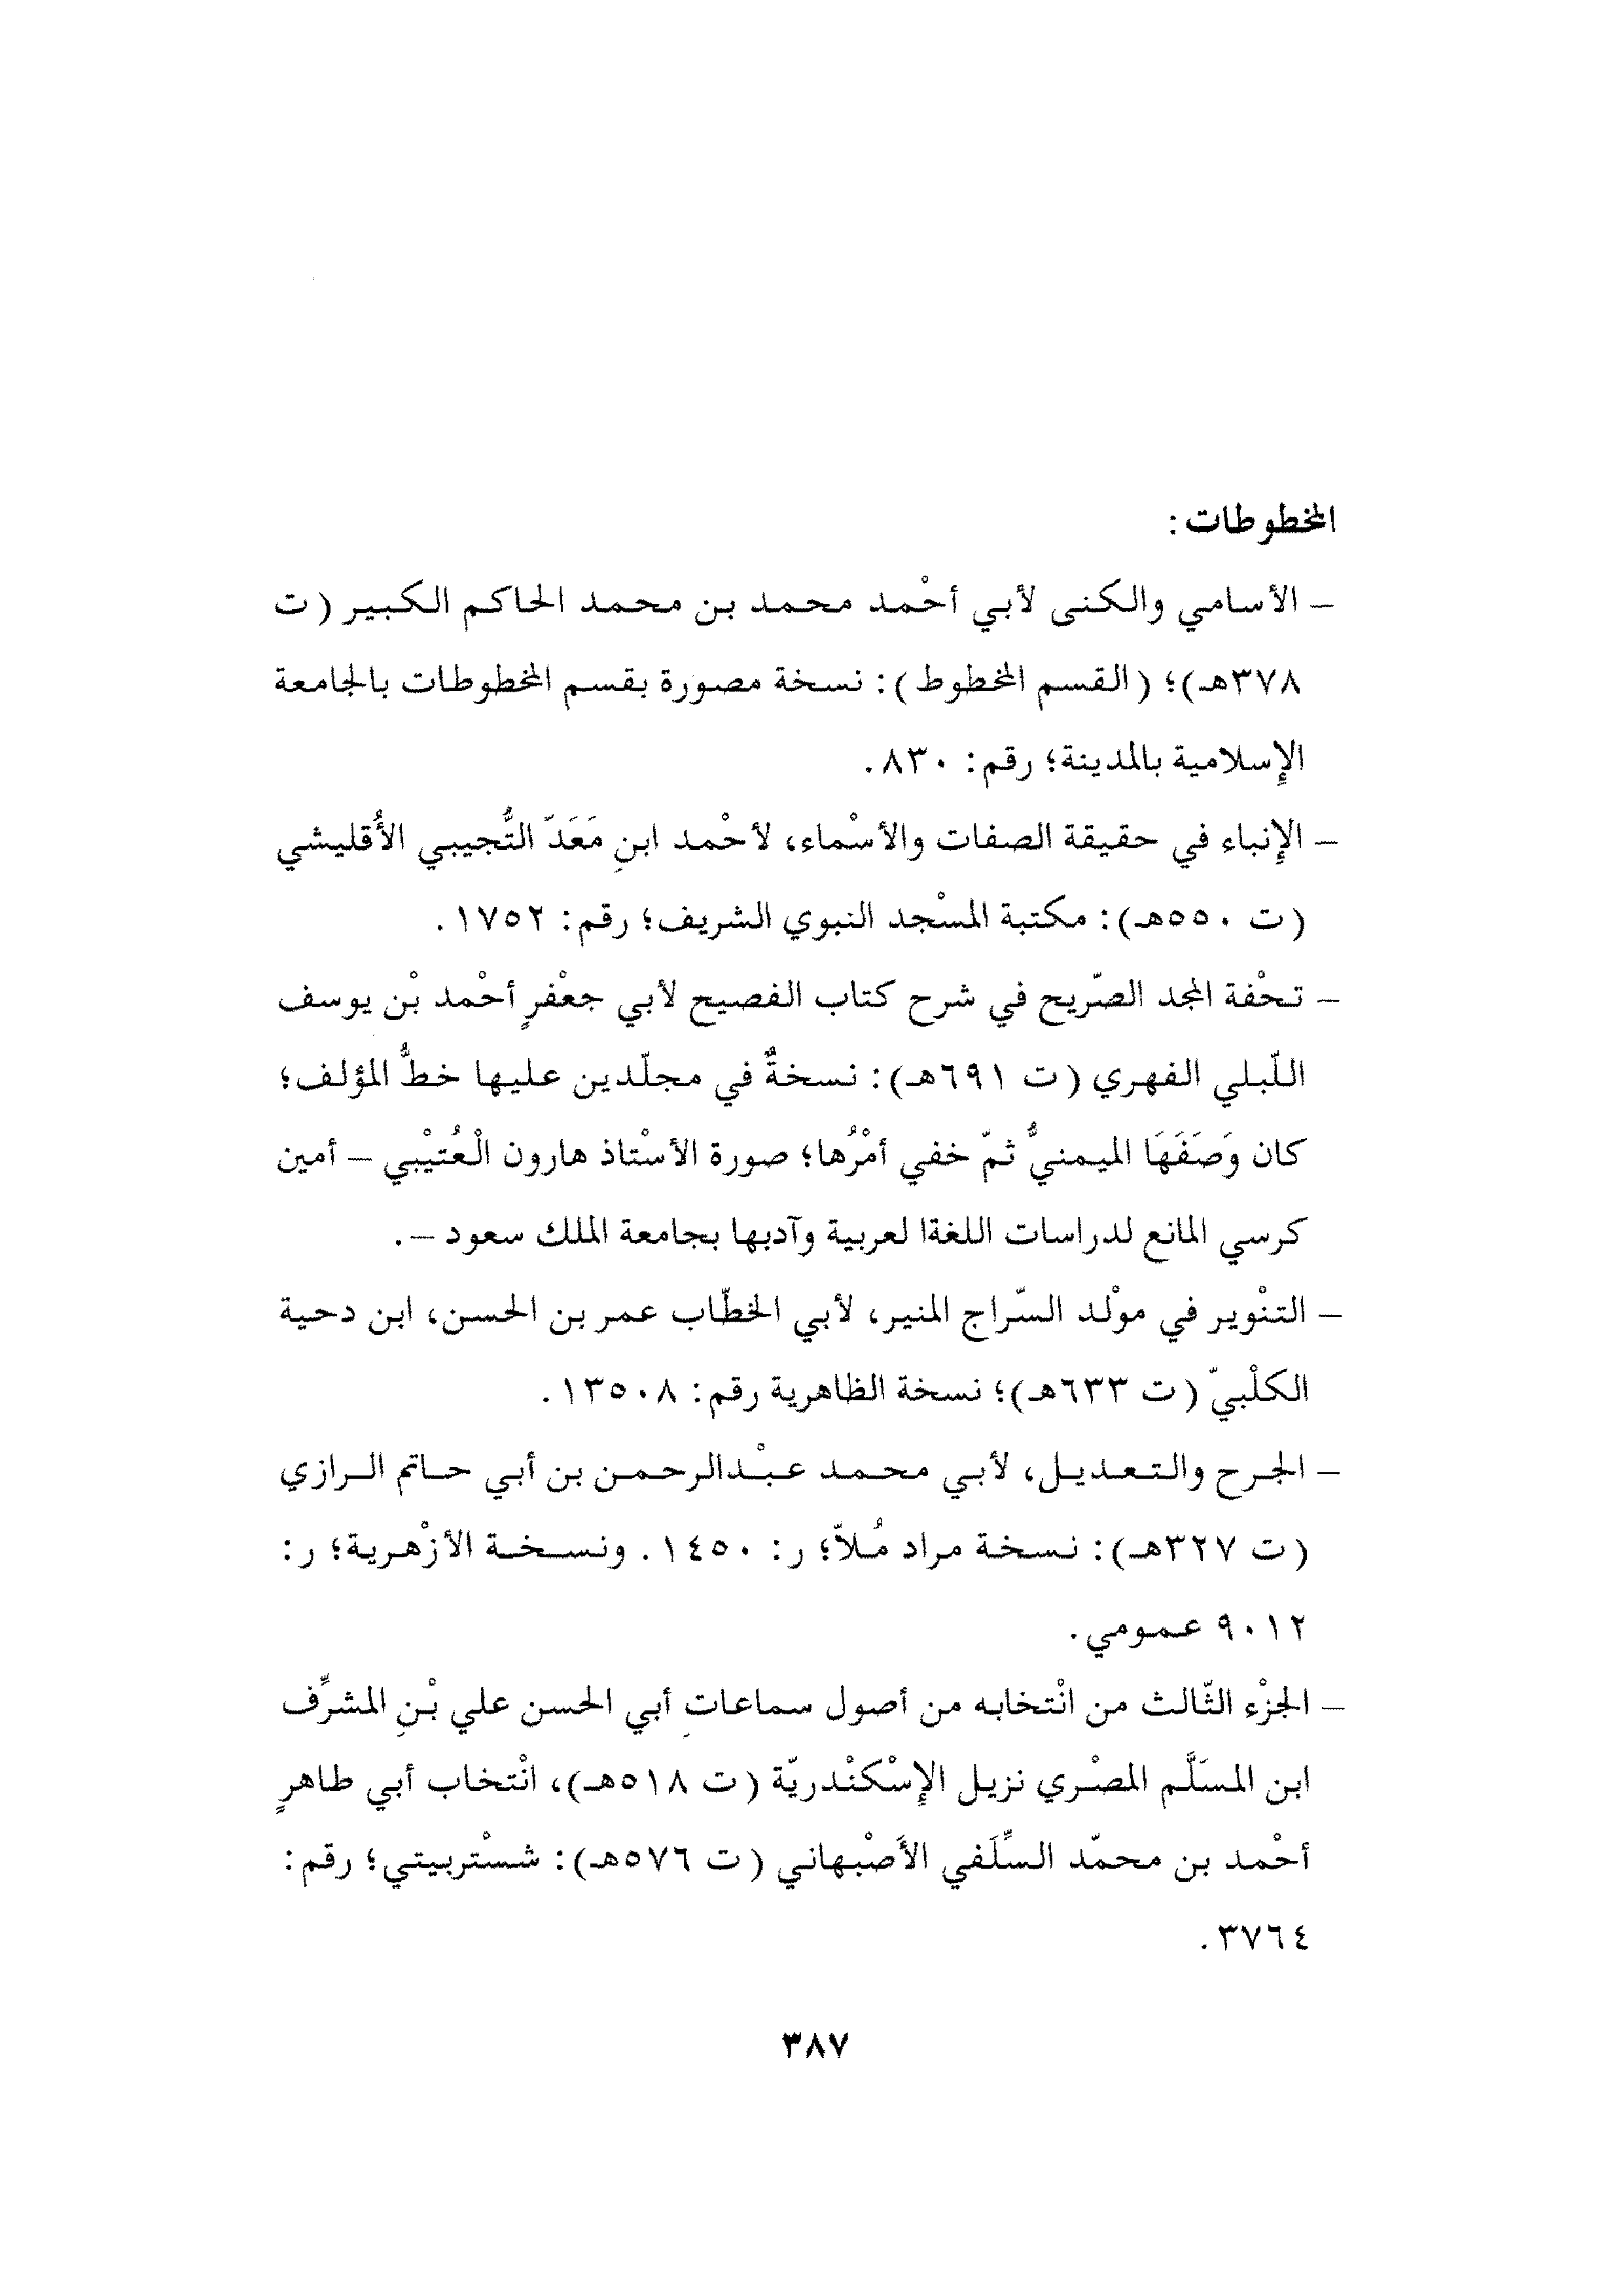 المخطوطات:
– الأسامي والكنى لأبي أحْمد محمد بن محمد الحاكم الكبير (ت
٣٧٨هـ)؛ (القسم المخطوط): نسخة مصورة بقسم المخطوطات بالجامعة
الإسلامية بالمدينة؛ رقم: ٨٣٠.
– الإنباء في حقيقة الصفات والأسْماء، لأحْمد ابنِ مَعَدّ التُّجيبي الأُقليشي
(ت ٥٥٠هـ): مكتبة المسْجد النبوي الشريف؛ رقم: ١٧٥٢.
– تحْفة المجد الصّريح في شرح كتاب الفصيح لأبي جعْفرٍ أحْمد بْن يوسف
اللّبلي الفهري (ت ٦٩١هـ): نسخةٌ في مجلّدين عليها خطُّ المؤلف؛
كان وَصَفَهَا الميمنيُّ ثمّ خفي أمْرُها؛ صورة الأسْتاذ هارون الْعُتيْبي – أمين
كرسي المانع لدراسات اللغةا لعربية وآدبها بجامعة الملك سعود –.
– التنْوير في موْلد السّراج المنير، لأبي الخطّاب عمر بن الحسن، ابن دحية
الكلْبيّ (ت ٦٣٣هـ)؛ نسخة الظاهرية رقم: ١٣٥٠٨.
– الجرح والتعديل، لأبي محمد عبْدالرحمن بن أبي حاتم الرازي
(ت ٣٢٧هـ): نسخة مراد مُلاّ؛ ر: ١٤٥٠. ونسخة الأزْهرية؛ ر:
٩٠١٢ عمومي.
– الجزْء الثّالث من انْتخابه من أصول سماعاتِ أبي الحسن علي بْنِ المشرَّف
ابن المسَلَّم المصْري نزيل الإسْكنْدريّة (ت ٥١٨هـ)، انْتخاب أبي طاهرٍ
أحْمد بن محمّد السِّلَفي الأَصْبهاني (ت ٥٧٦هـ): شسْتربيتي؛ رقم:
٣٧٦٤.
٣٨٧